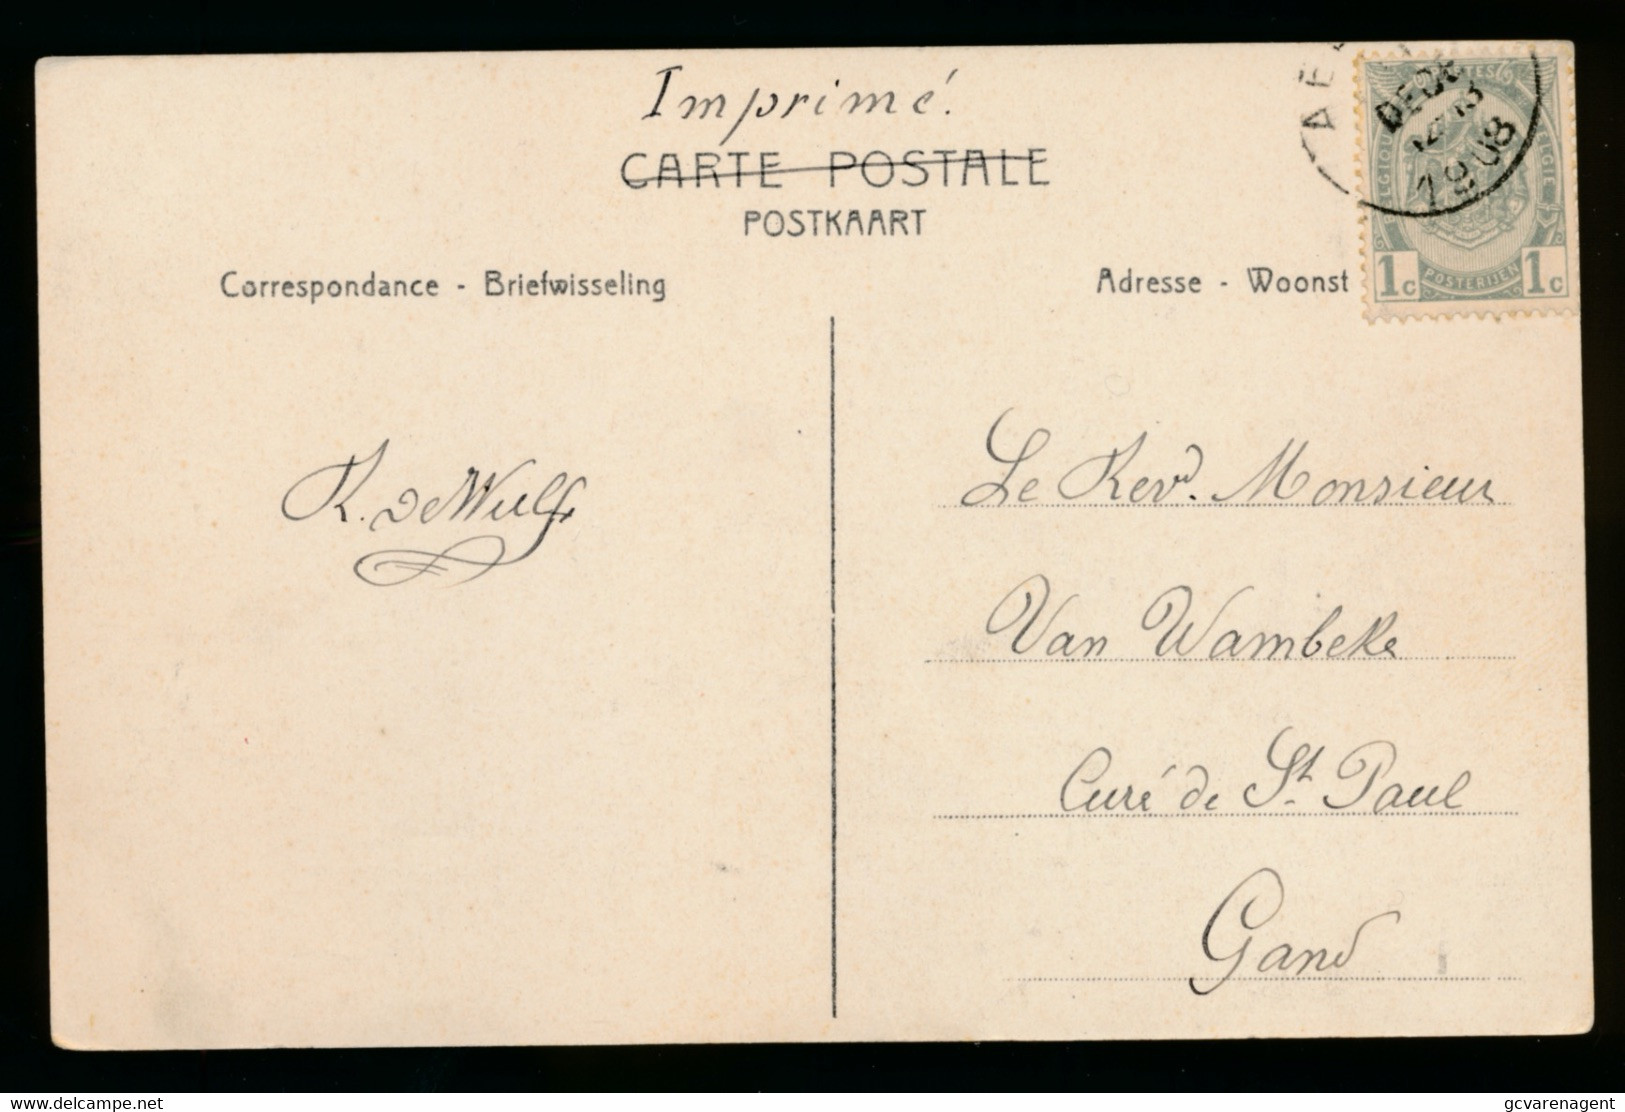 Imprimé.
CARTE POSTALE
POSTKAART
Correspondance - Briefwisseling
Adresse - Woonst
1c POSTERIJEN 1c
K. De Wulf
Le Revd. Monsieur
Van Wambeke
Curé de St. Paul
Gand
www.delcampe.net
gcvarenagent